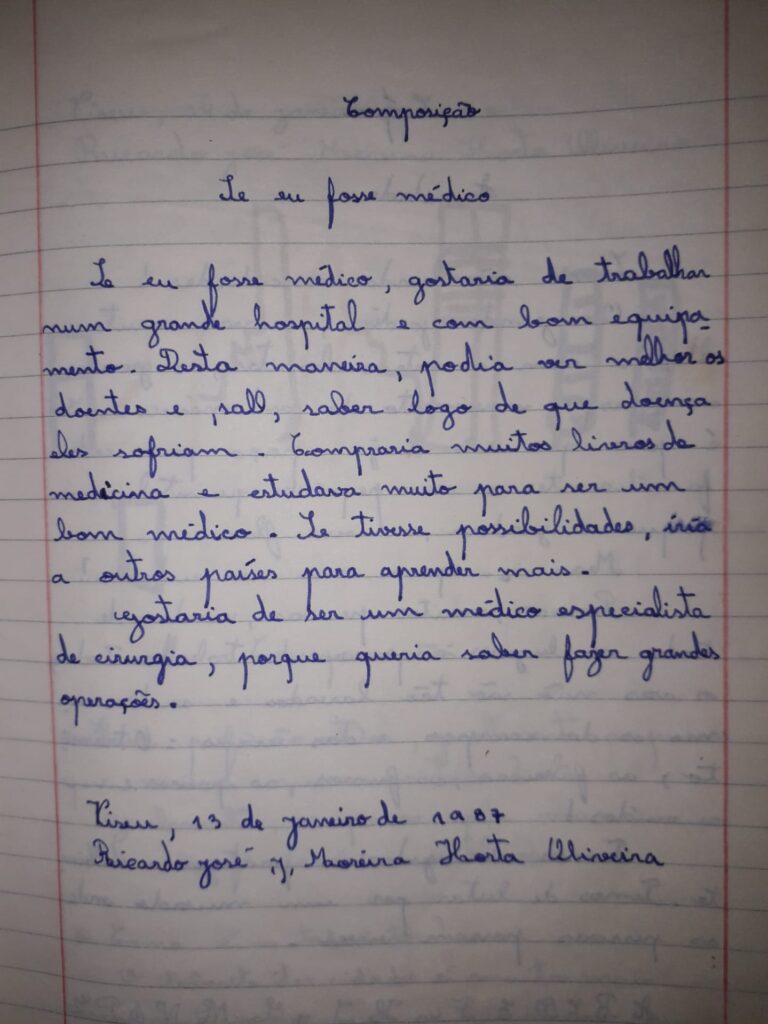 Composição
Se eu fosse médico
Se eu fosse médico, gostaria de trabalhar
num grande hospital e com bom equipa-
mento. Desta maneira, podia ver melhor os
doentes e saber logo de que doença
eles sofriam. Compraria muitos livros de
medicina e estudava muito para ser um
bom médico. Se tivesse possibilidades, iria
a outros países para aprender mais.
Gostaria de ser um médico especialista
de cirurgia, porque queria saber fazer grandes
operações.
Viseu, 13 de janeiro de 1987
Ricardo José Moreira Horta Oliveira